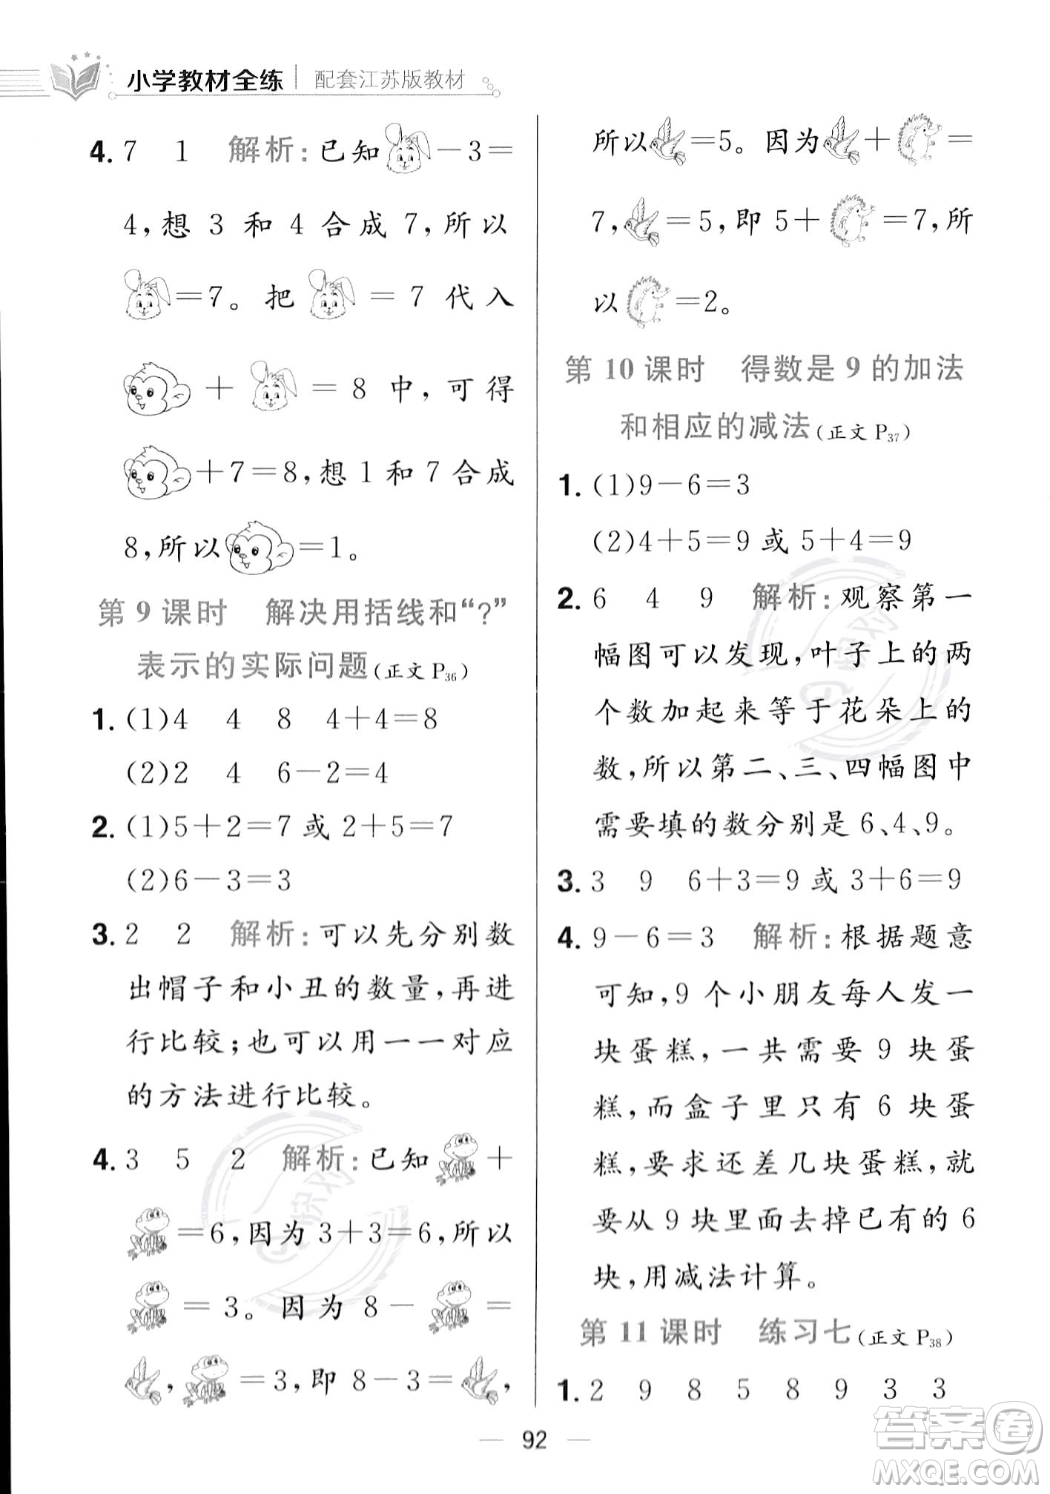 小学教材全练 配套江苏版教材
4. 7 1 解析:已知 －3＝
4,想 3 和 4 合成 7,所以
＝7。把 ＝ 7 代入
＋ ＝ 8 中,可得
＋7＝8,想 1 和 7 合成
8,所以 ＝1。
第 9 课时 解决用括线和“?”
表示的实际问题(正文 P36)
1. (1)4 4 8 4＋4＝8
(2)2 4 6－2＝4
2. (1)5＋2＝7 或 2＋5＝7
(2)6－3＝3
3. 2 2 解析:可以先分别数
出帽子和小丑的数量,再进
行比较;也可以用一一对应
的方法进行比较。
4. 3 5 2 解析:已知 ＋
＝6,因为 3＋3＝6,所以
＝3。因为 8－ ＝
, ＝3,即 8－3＝ ,
所以 ＝5。因为 ＋ ＝
7, ＝5,即 5＋ ＝7,所
以 ＝2。
第 10 课时 得数是 9 的加法
和相应的减法(正文 P37)
1. (1)9－6＝3
(2)4＋5＝9 或 5＋4＝9
2. 6 4 9 解析:观察第一
幅图可以发现,叶子上的两
个数加起来等于花朵上的
数,所以第二、三、四幅图中
需要填的数分别是 6、4、9。
3. 3 9 6＋3＝9 或 3＋6＝9
4. 9－6＝3 解析:根据题意
可知,9 个小朋友每人发一
块蛋糕,一共需要 9 块蛋
糕,而盒子里只有 6 块蛋
糕,要求还差几块蛋糕,就
要从 9 块里面去掉已有的 6
块,用减法计算。
第 11 课时 练习七(正文 P38)
1. 2 9 8 5 8 9 3 3
92
答案卷
MXQE.COM